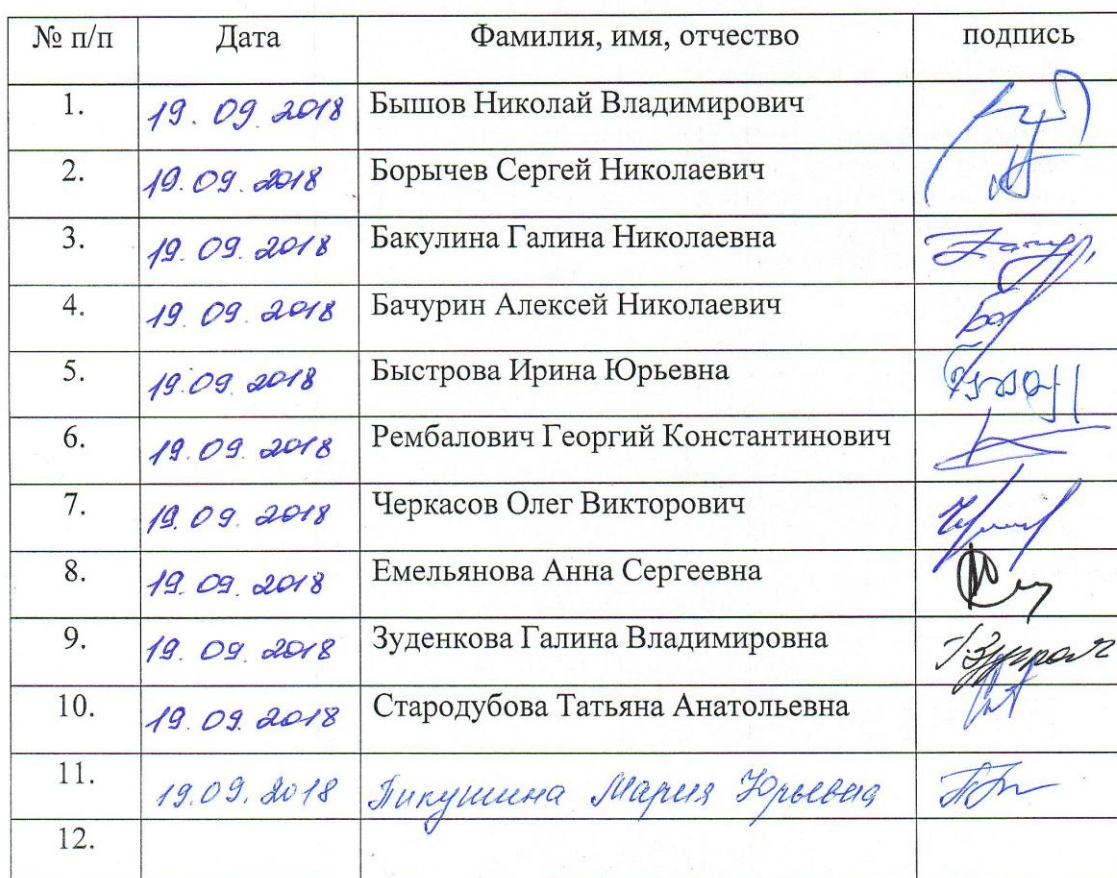 № п/п Дата Фамилия, имя, отчество подпись
1. 19.09.2018 Бышов Николай Владимирович
2. 19.09.2018 Борычев Сергей Николаевич
3. 19.09.2018 Бакулина Галина Николаевна
4. 19.09.2018 Бачурин Алексей Николаевич
5. 19.09.2018 Быстрова Ирина Юрьевна
6. 19.09.2018 Рембалович Георгий Константинович
7. 19.09.2018 Черкасов Олег Викторович
8. 19.09.2018 Емельянова Анна Сергеевна
9. 19.09.2018 Зуденкова Галина Владимировна
10. 19.09.2018 Стародубова Татьяна Анатольевна
11. 19.09.2018 Пикушина Мария Юрьевна
12.